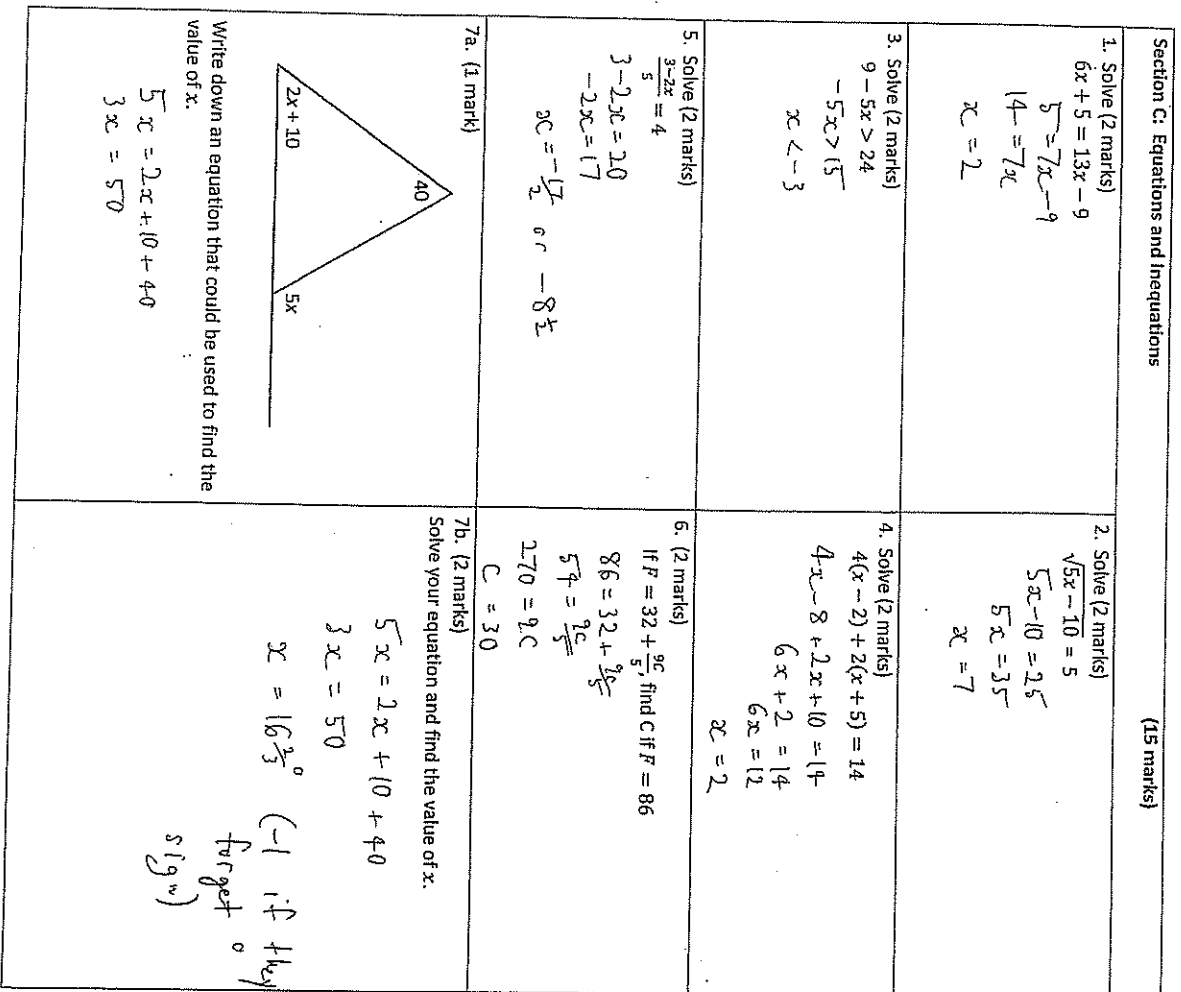 Section C: Equations and Inequations (15 marks)
1. Solve (2 marks)
6x + 5 = 13x − 9
5 = 7x − 9
14 = 7x
x = 2
2. Solve (2 marks)
√5x − 10 = 5
5x − 10 = 25
5x = 35
x = 7
3. Solve (2 marks)
9 − 5x > 24
−5x > 15
x < −3
4. Solve (2 marks)
4(x − 2) + 2(x + 5) = 14
4x − 8 + 2x + 10 = 14
6x + 2 = 14
6x = 12
x = 2
5. Solve (2 marks)
3−2x/5 = 4
3 − 2x = 20
−2x = 17
x = −17/2 or −8½
6. (2 marks)
If F = 32 + 9C/5, find C if F = 86
86 = 32 + 9C/5
54 = 9C/5
270 = 9C
C = 30
7a. (1 mark)
40
2x + 10
5x
Write down an equation that could be used to find the
value of x.
5x = 2x + 10 + 40
3x = 50
7b. (2 marks)
Solve your equation and find the value of x.
5x = 2x + 10 + 40
3x = 50
x = 16⅔° (−1 if they
forget °
sign)